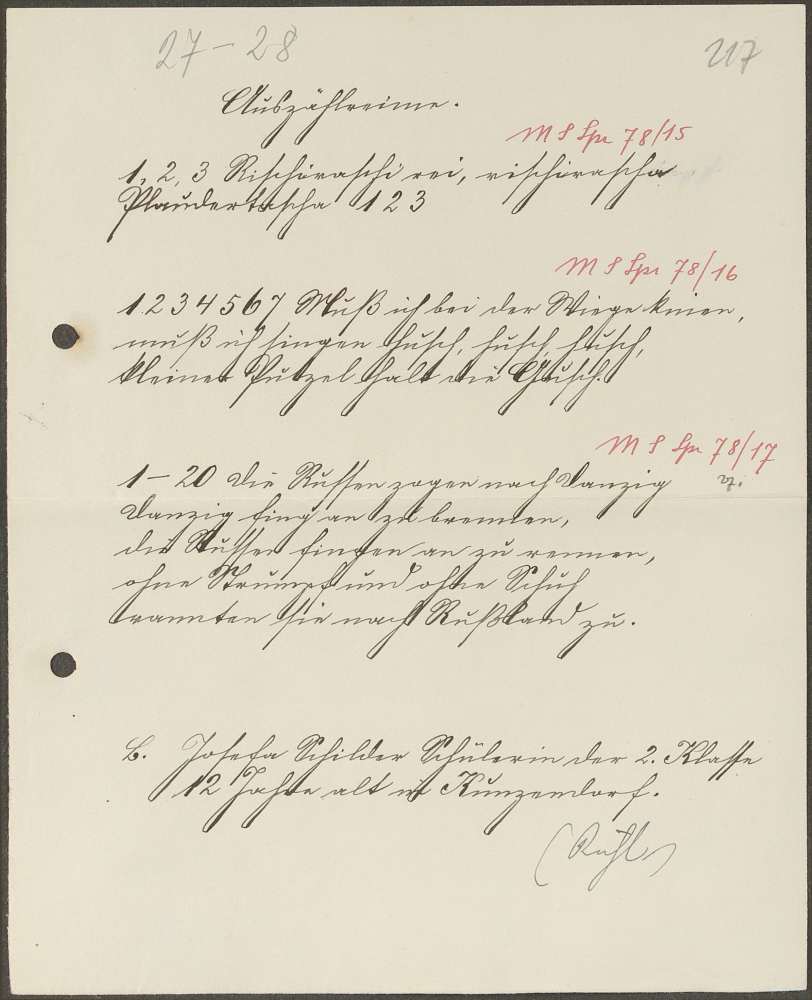 27 – 28
217
Auszählreime.
M S Spr 78/15
1, 2, 3 Rischiraschi rei, rischirascha
Plaudertascha 1 2 3
M S Spr 78/16
1 2 3 4 5 6 7 Muß ich bei der Wiege knien,
muß ich singen husch, husch, husch,
kleiner Putzel halt die Gusch.
M S Spr 78/17
1–20 Die Russen zogen nach Danzig
Danzig fing an zu brennen,
die Russen fingen an zu rennen,
ohne Strumpf und ohne Schuh
rannten sie nach Rußland zu.
B. Josefa Schilder Schülerin der 2. Klasse
12 Jahre alt in Kunzendorf.